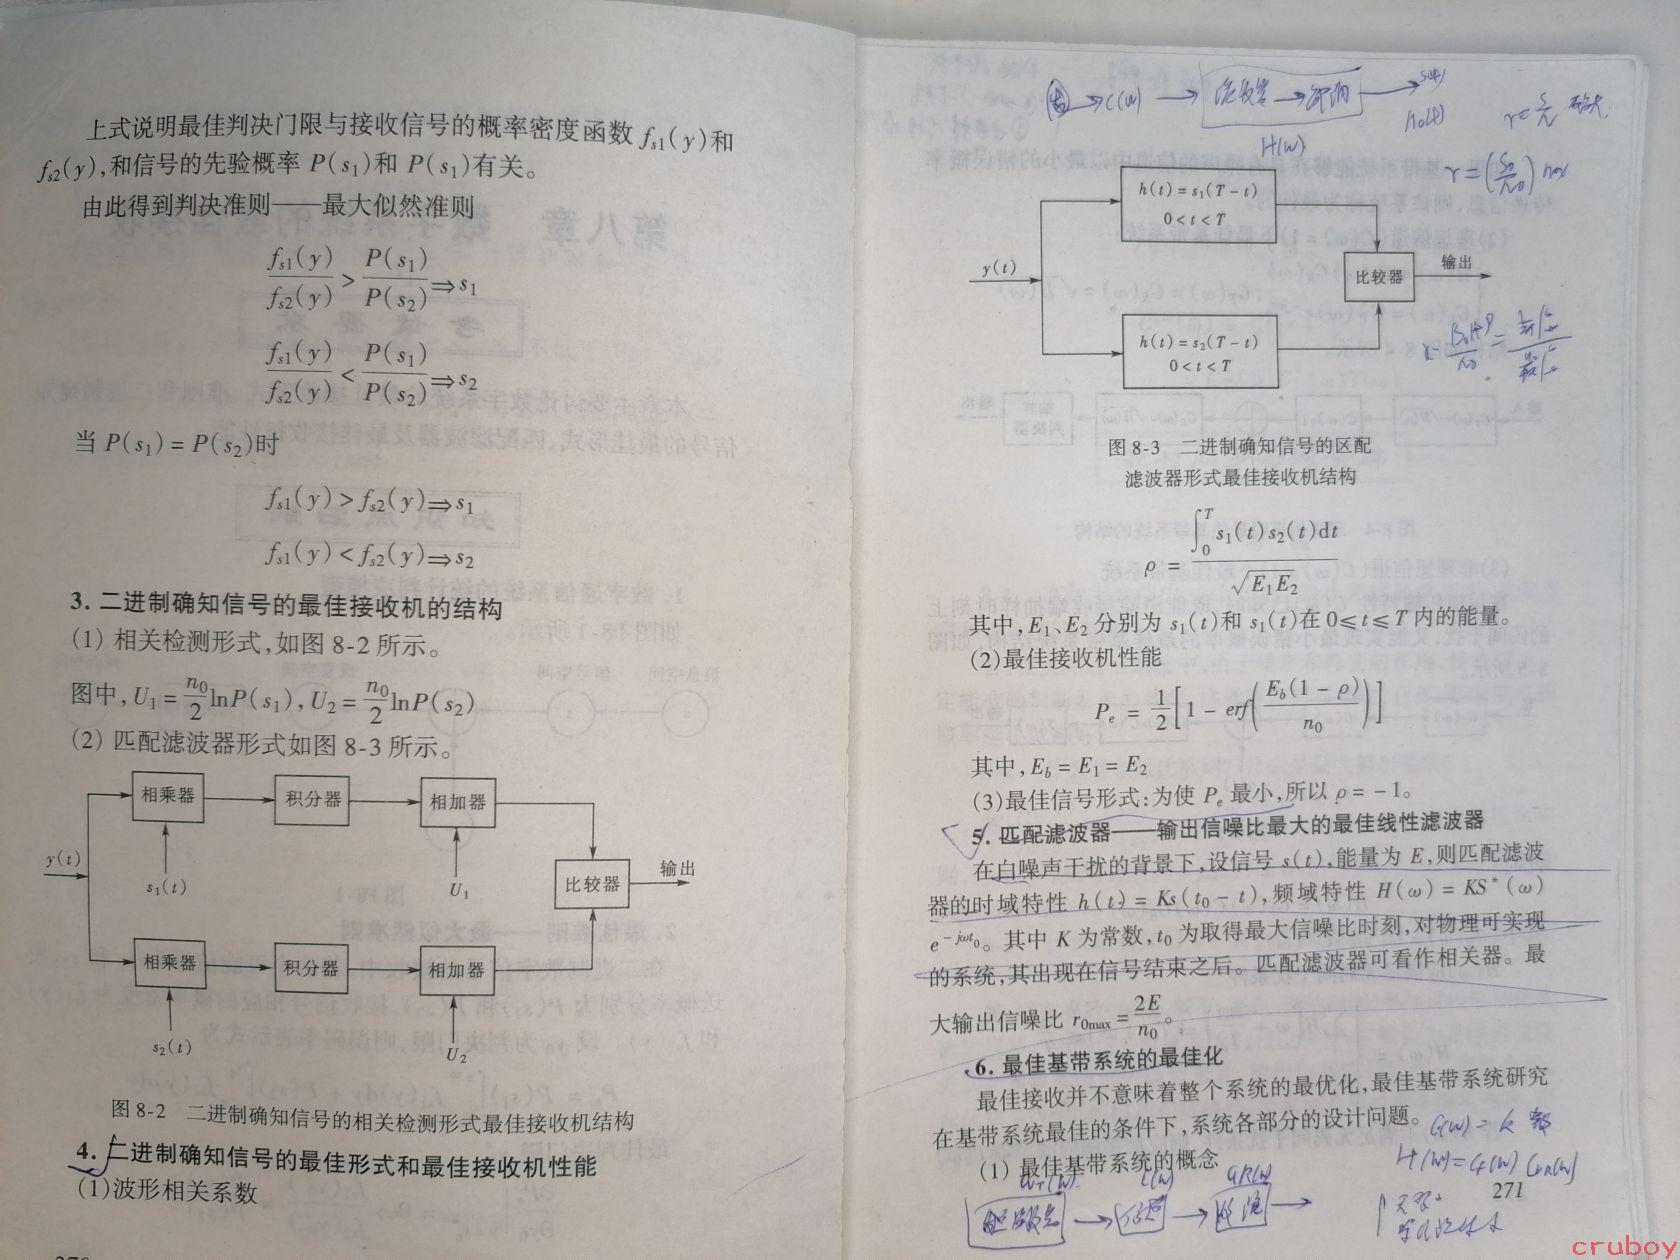 上式说明最佳判决门限与接收信号的概率密度函数 fs1(y)和
fs2(y),和信号的先验概率 P(s1)和 P(s1)有关。
由此得到判决准则——最大似然准则
fs1(y)/fs2(y) > P(s1)/P(s2) ⇒s1
fs1(y)/fs2(y) < P(s1)/P(s2) ⇒s2
当 P(s1) = P(s2)时
fs1(y) > fs2(y)⇒s1
fs1(y) < fs2(y)⇒s2
3. 二进制确知信号的最佳接收机的结构
(1) 相关检测形式,如图 8-2 所示。
图中, U1 = n0/2 lnP(s1), U2 = n0/2 lnP(s2)
(2) 匹配滤波器形式如图 8-3 所示。
相乘器 积分器 相加器
y(t)
s1(t)
U1
比较器
输出
相乘器 积分器 相加器
s2(t)
U2
图 8-2 二进制确知信号的相关检测形式最佳接收机结构
4. 二进制确知信号的最佳形式和最佳接收机性能
(1)波形相关系数
C(ω)
H(ω)
h(t) = s1(T-t)
0<t<T
y(t)
比较器
输出
h(t) = s2(T-t)
0<t<T
图 8-3 二进制确知信号的区配
滤波器形式最佳接收机结构
ρ = ∫0T s1(t)s2(t)dt / √E1E2
其中, E1、E2 分别为 s1(t)和 s1(t)在 0≤t≤T 内的能量。
(2)最佳接收机性能
Pe = 1/2[1 - erf(Eb(1 - ρ)/n0)]
其中, Eb = E1 = E2
(3)最佳信号形式:为使 Pe 最小,所以 ρ= -1。
5. 匹配滤波器——输出信噪比最大的最佳线性滤波器
在白噪声干扰的背景下,设信号 s(t),能量为 E,则匹配滤波
器的时域特性 h(t) = Ks(t0 - t),频域特性 H(ω) = KS*(ω)
e-jωt0。其中 K 为常数, t0 为取得最大信噪比时刻,对物理可实现
的系统,其出现在信号结束之后。匹配滤波器可看作相关器。最
大输出信噪比 r0max = 2E/n0。
6. 最佳基带系统的最佳化
最佳接收并不意味着整个系统的最优化,最佳基带系统研究
在基带系统最佳的条件下,系统各部分的设计问题。
(1) 最佳基带系统的概念
271
cruboy